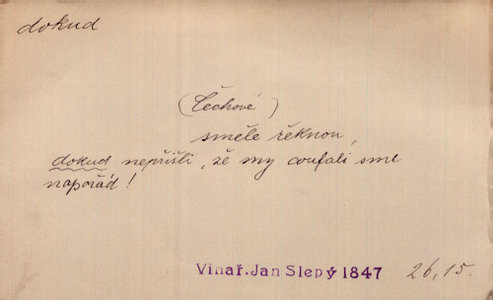 dokud
(Čechové)
směle řeknou,
dokud nepřišli, že my coufali sme
napořád!
Vinař. Jan Slepý 1847 26, 15.